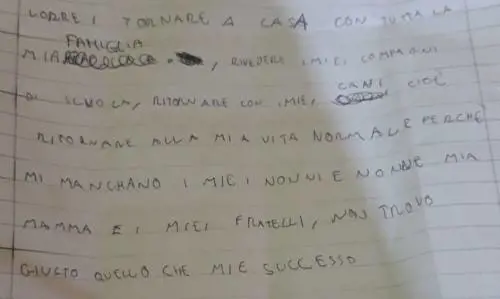 VORREI TORNARE A CASA CON TUTTA LA
FAMIGLIA
MIA, RIVEDERE I MIEI COMPAGNI
DI SCUOLA, RITORNARE CON I MIEI CANI CIOÈ
RITORNARE ALLA MIA VITA NORMALE PERCHE
MI MANCHANO I MIEI NONNI E NONNE MIA
MAMMA E I MIEI FRATELLI, NON TROVO
GIUSTO QUELLO CHE MIE SUCCESSO